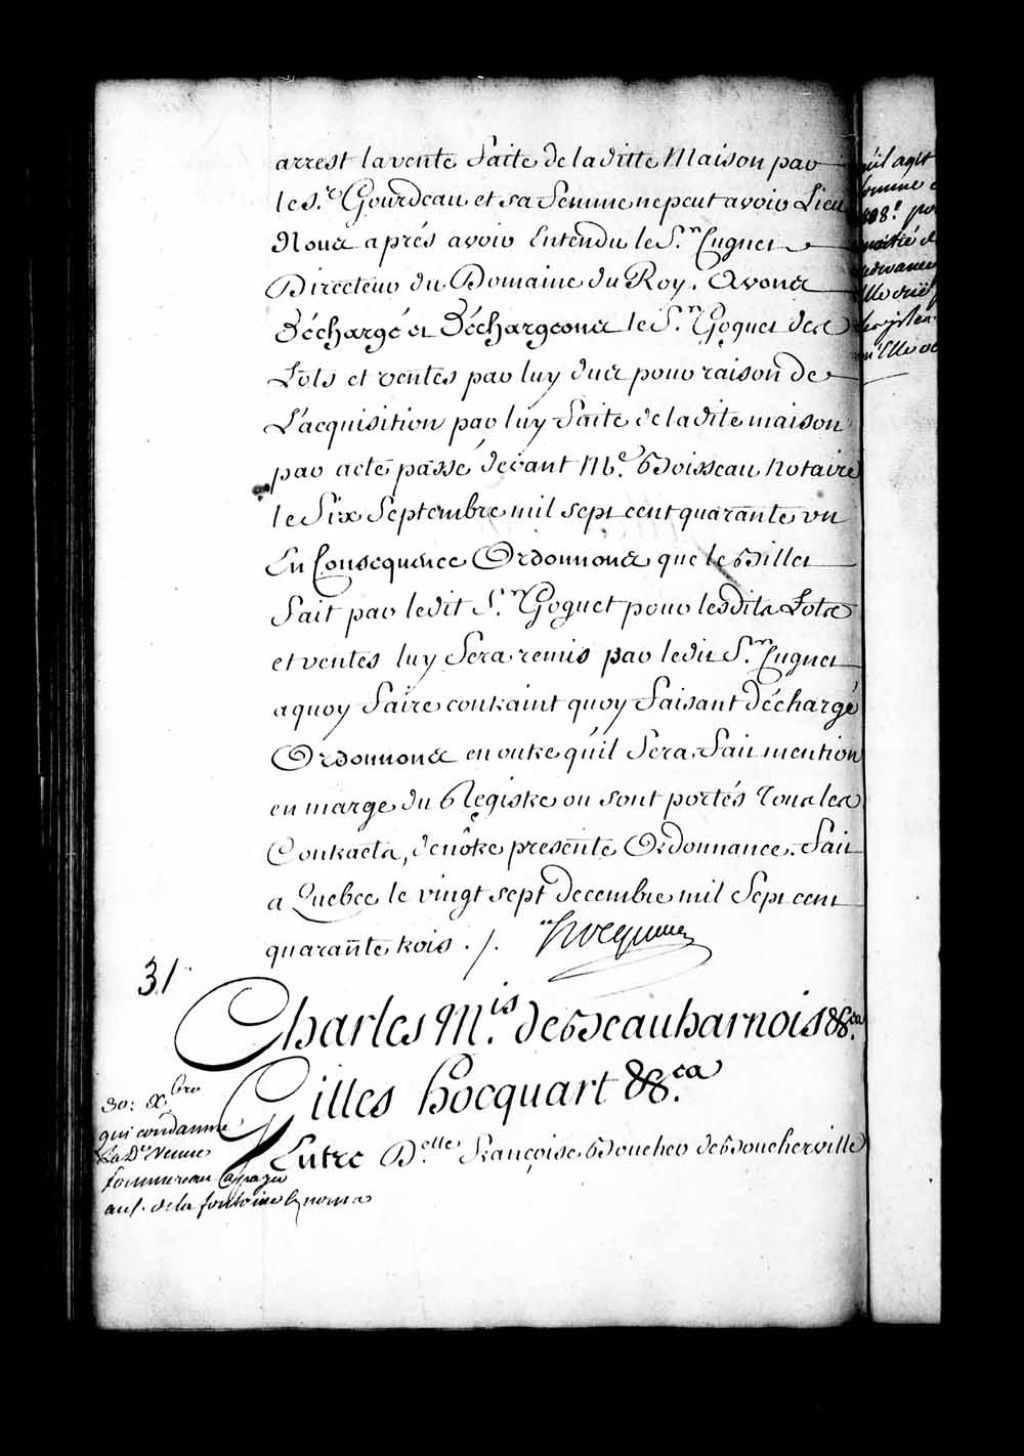 arrest la vente faite de la ditte Maison par
le S.r Gourdeau et sa femme ne peut avoir Lieu
Nous après avoir Entendu le S.r Cugnet
Directeur du Domaine du Roy. Avons
Déchargé et Déchargeons le S.r Goguet des
Lots et ventes par luy dus pour raison de
L'acquisition par luy faite de la dite maison
par acte passé devant M.e Boisseau Notaire
le Six Septembre mil sept cent quarante un
En Consequence Ordonnons que le Billet
fait par ledit S.r Goguet pour lesdits Lots
et ventes luy sera remis par ledit S.r Cugnet
a quoy faire contraint quoy faisant déchargé
Ordonnons en outre qu'il sera fait mention
en marge du Registre ou sont portés Tous les
Contracts, de nôtre presente Ordonnance. fait
a Quebec le vingt sept decembre mil Sept cent
quarante trois ./. Hocquart
31
Charles M.is de Beauharnois &c.a
Gilles hocquart &c.a
30: X.bre
qui condamne
La D.e Veuve
fommereau a payer
au S. de la fontaine la somme
Entre D.elle Françoise Boucher de Boucherville
qu'il agit
comme